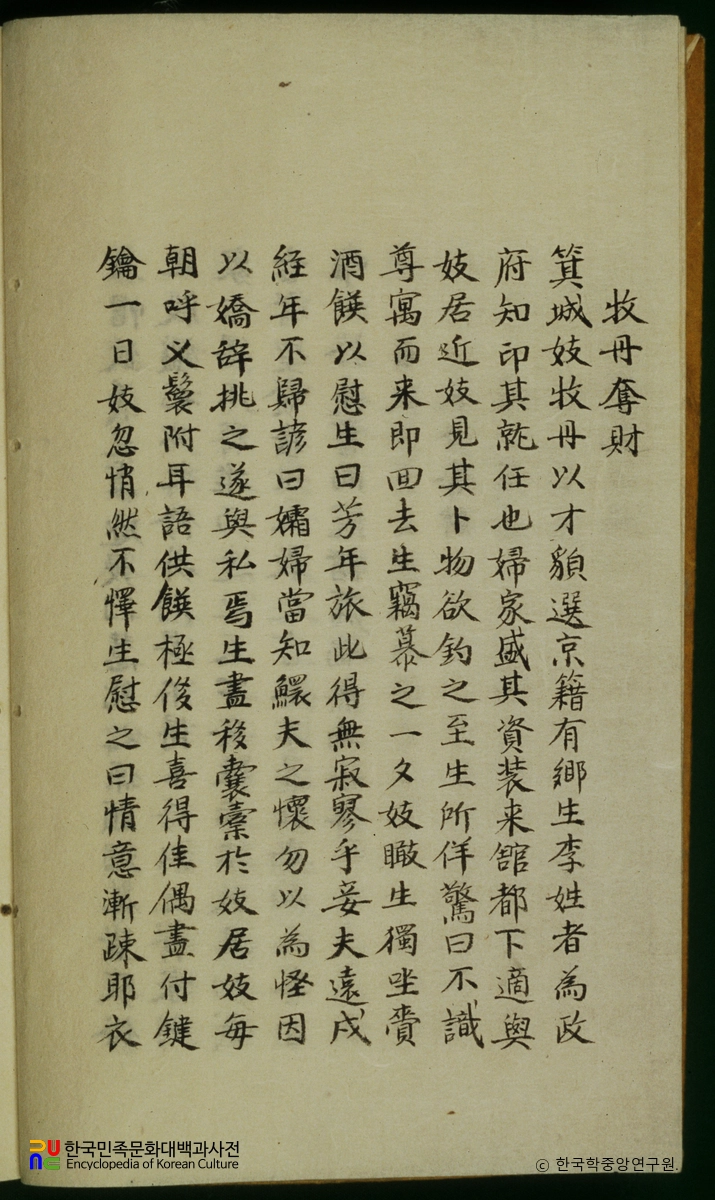 牧丹奪財
箕城妓牧丹以才貌選京籍有鄉生李姓者為政
府知印其就任也婦家盛其資装来舘都下適與
妓居近妓見其卜物欲釣之至生所佯驚曰不識
尊寓而来即囬去生竊慕之一夕妓瞰生獨坐賫
酒饌以慰生曰芳年旅此得無寂寥乎妾夫遠戍
経年不歸諺曰孀婦當知鰥夫之懷勿以為怪因
以嬌辞挑之遂與私焉生盡移囊槖於妓居妓每
朝呼义鬟附耳語供饌極俊生喜得佳偶盡付鍵
鑰一日妓忽悄然不懌生慰之曰情意漸踈耶衣
한국민족문화대백과사전
Encyclopedia of Korean Culture
© 한국학중앙연구원.